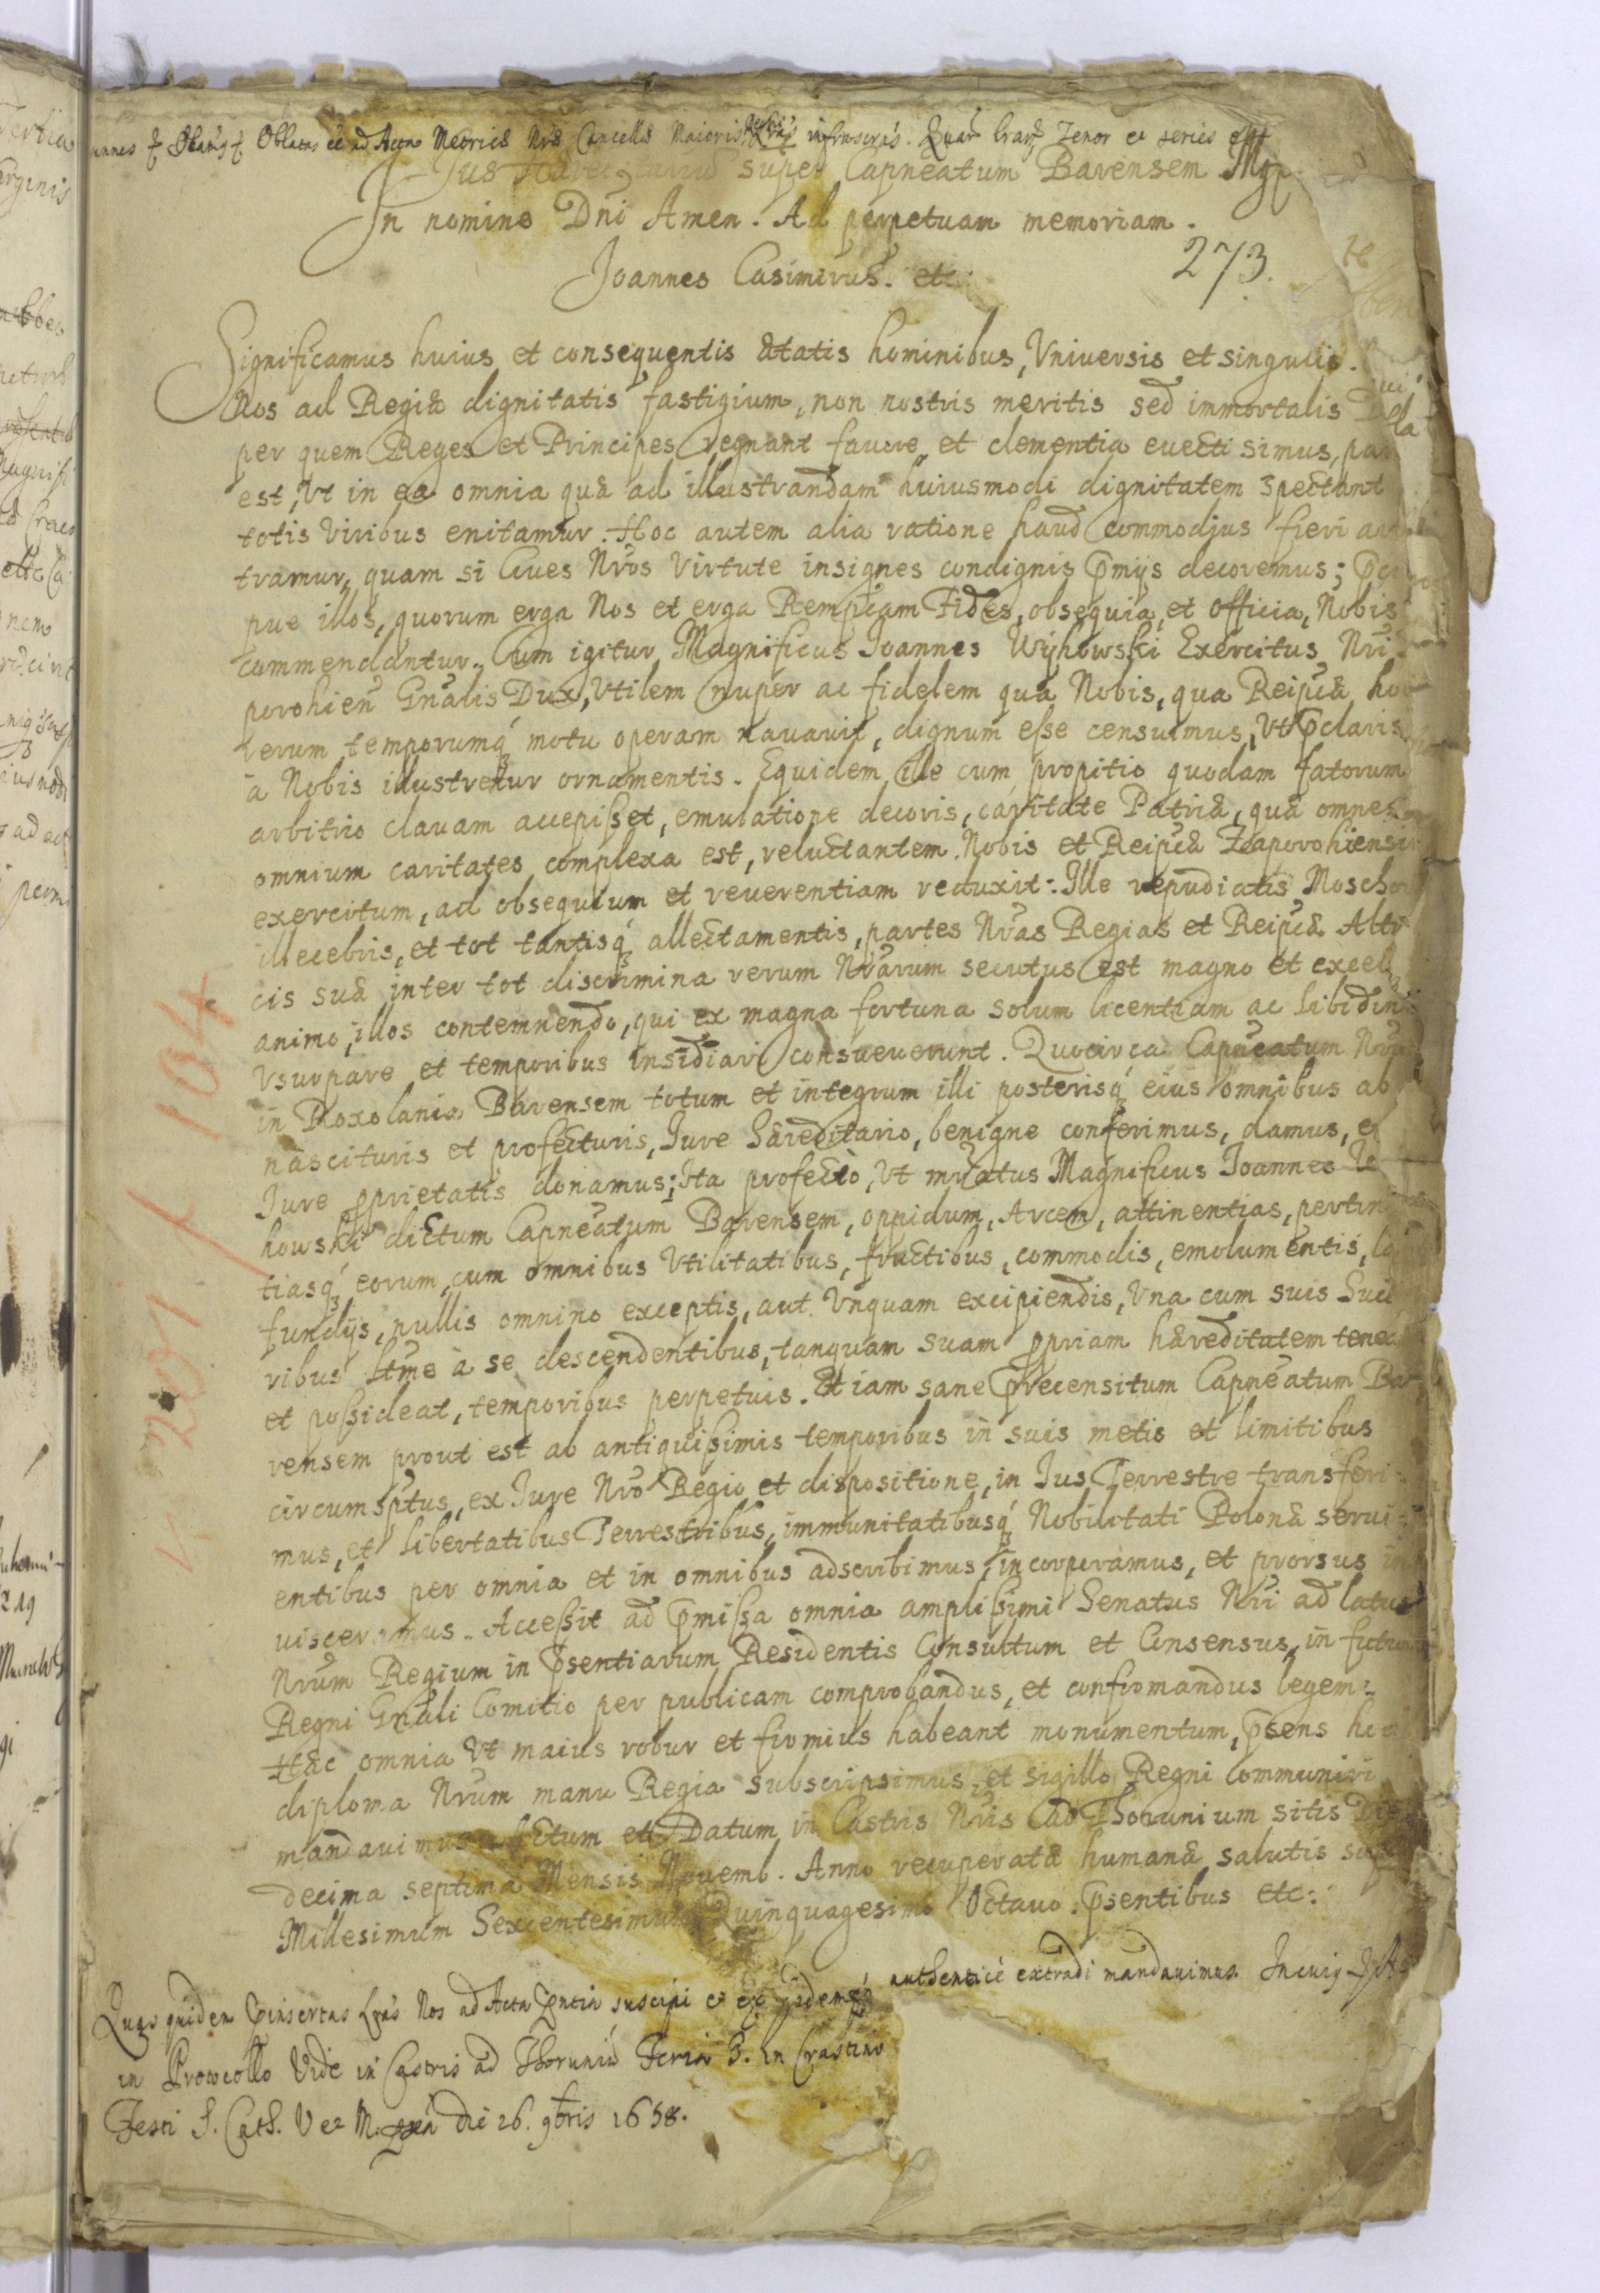 Oblatas e̅e ad Acta Metrices Nrӕ Cancellӕ Maioris Regni Lras infrascras. Quar̄ Lrar̄ Tenor et series est
Jus Hӕreditariũ super Capneatum Barensem Mgco
In nomine Dni Amen. Ad perpetuam memoriam.
Joannes Casimirus. etc:
273.
Significamus huius et consequentis ӕtatis hominibus, Vniversis et singulis.
Nos ad Regiӕ dignitatis fastigium, non nostris meritis sed immortalis Dei
per quem Reges et Principes regnant favore, et clementia euecti simus, par
est, Vt in ea omnia quӕ ad illustrandam huiusmodi dignitatem spectant
totis Viribus enitamur. Hoc autem alia ratione haud commodius fieri arbi
tramur, quam si Ciues Nros Virtute insignes condignis p̄mijs decoremus; p̄ci
pue illos, quorum erga Nos et erga Rempcam Fides, obsequia, et Officia, Nobis
commendantur. Cum igitur Magnificus Joannes Wyhowski Exercitus Nri Za
porohien Gnalis Dux, Vtilem nuper ac fidelem qua Nobis, qua Reipcӕ hoc
rerum temporumq́ motu operam nauauit, dignum esse censuimus, Vt p̄claris
à Nobis illustretur ornamentis. Equidem ille cum propitio quodam fatorum
arbitrio clauam accepisset, emulatione decoris, caritate Patriӕ, quӕ omnes
omnium caritates complexa est, reluctantem Nobis et Reipcӕ Zaporohiensium
exercitum, ad obsequium et reuerentiam reduxit: Ille repudiatis Moschor
illecebris, et tot tantisq́ allectamentis, partes Nras Regias et Reipcӕ Altri
cis suӕ inter tot discrimina rerum Nrarum secutus est magno et excel
animo, illos contemnendo, qui ex magna fortuna solum licentiam ac libidinis
Vsurpare et temporibus insidiari consueuerunt. Quocirca Capneatum Nrum
in Roxolania Barensem totum et integrum illi posterisq́ eius omnibus ab
nascituris et profecturis, Jure Hӕreditario, benigne conferimus, damus, et
Jure p̄prietatis donamus; Ita profectò, Vt mr̄atus Magnificus Joannes Wy
howski dictum Capneatum Barensem, oppidum, Arcem, attinentias, pertinen
tiasq́ eorum, cum omnibus Vtilitatibus, fructibus, commodis, emolumentis,
fundijs, nullis omnino exceptis, aut Vnquam excipiendis, Vna cum suis Succ
ribus ltme à se descendentibus, tanquam suam p̄priam hӕreditatem teneat
et possideat, temporibus perpetuis. Et iam sane p̄recensitum Capneatum Ba
rensem prout est ab antiquissimis temporibus in suis metis et limitibus
circumsptus, ex Jure Nro Regio et dispositione, in Jus Terrestre transferi
mus, et libertatibus Terrestribus, immunitatibusq́ Nobilitati Polonӕ serui
entibus per omnia et in omnibus adscribimus, incorporamus, et prorsus in
uisceramus. Accessit ad p̄missa omnia amplissimi Senatus Nri ad latus
Nrum Regium in p̄sentiarum Residentis Consultum et Consensus, in futuro
Regni Gnali Comitio per publicam comprobandus, et confirmandus legem.
Hӕc omnia Vt maius robur et firmius habeant monumentum, p̄sens hoc
diploma Nrum manu Regia subscripsimus, et sigillo Regni Communiri
mandauimus. Actum et Datum in Castris Nris ad Thorunium sitis Die
decima septima Mensis Nouemb. Anno recuperatӕ humanӕ salutis supra
Millesimum Sexcentesimum Quinquagesimo Octauo. p̄sentibus etc:
Quas quidem p̄insertas Lras Nos ad Acta p̄ntia suscipi et ex ijsdemq́ authentice extradi mandauimus. In cuiq
in Protocollo Vide in Castris ad Thoruniũ Feria 3. in Crastino
Festi S. Cath. V et M. die 26. 9bris 1658.
V. 201 / 104